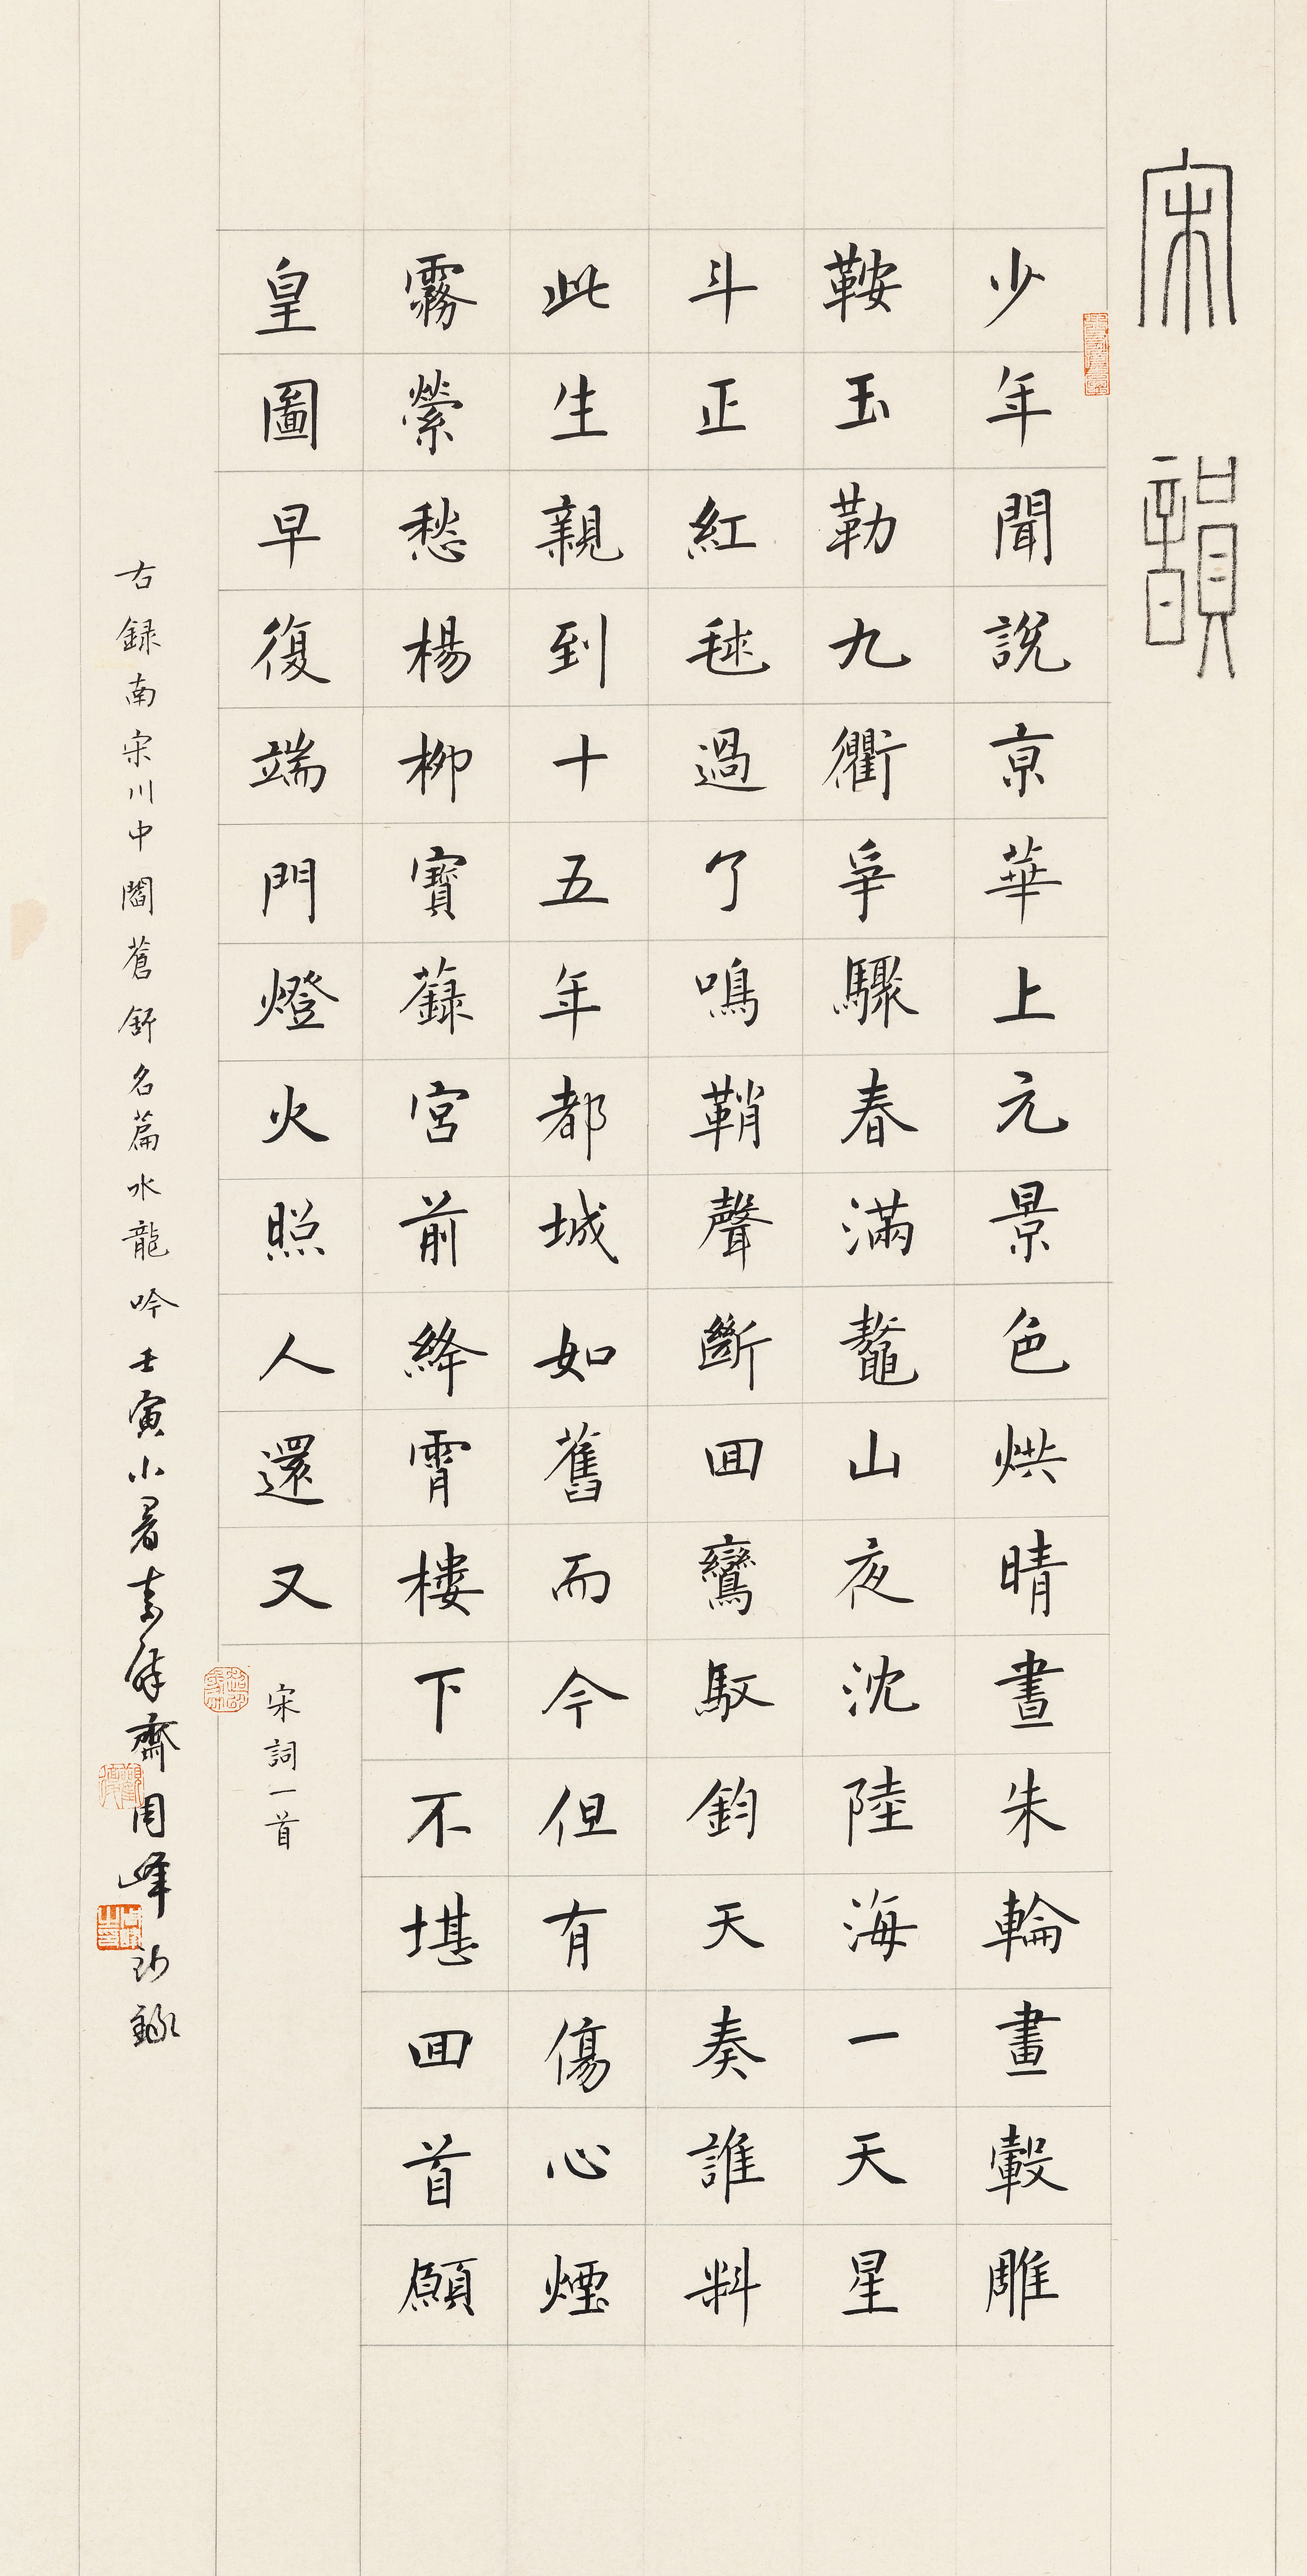 宋韻
少年聞說京華上元景色烘晴晝朱輪畫轂雕
鞍玉勒九衢爭驟春滿鼇山夜沈陸海一天星
斗正紅毬過了鳴鞘聲斷回鸞馭鈞天奏誰料
此生親到十五年都城如舊而今但有傷心煙
霧縈愁楊柳寶籙宮前絳霄樓下不堪回首願
皇圖早復端門燈火照人還又
宋詞一首
右録南宋川中閻蒼舒名篇水龍吟壬寅小暑素解齋周峰鈔錄